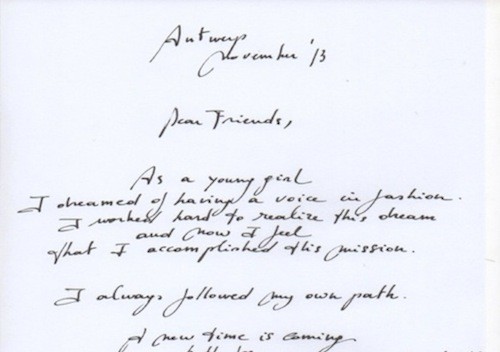 Antwerp
november '13
Dear Friends,
As a young girl
I dreamed of having a voice in fashion.
I worked hard to realize this dream
and now I feel
that I accomplished this mission.
I always followed my own path.
A new time is coming